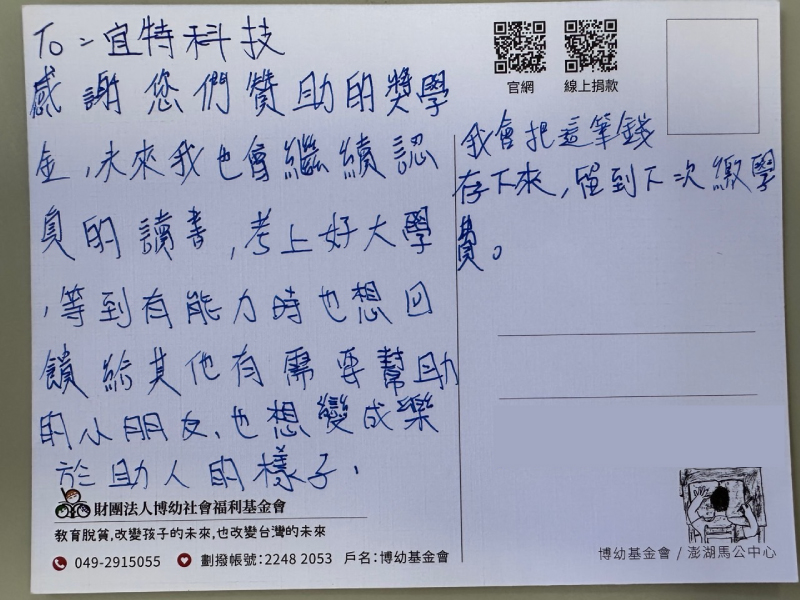 To：宜特科技
感謝您們贊助的獎學
金,未來我也會繼續認
真的讀書,考上好大學
,等到有能力時也想回
饋給其他有需要幫助
的小朋友,也想變成樂
於助人的樣子.
官網
線上捐款
我會把這筆錢
存下來,留到下次繳學
費。
財團法人博幼社會福利基金會
教育脫貧,改變孩子的未來,也改變台灣的未來
049-2915055 劃撥帳號:2248 2053 戶名:博幼基金會
博幼基金會 / 澎湖馬公中心